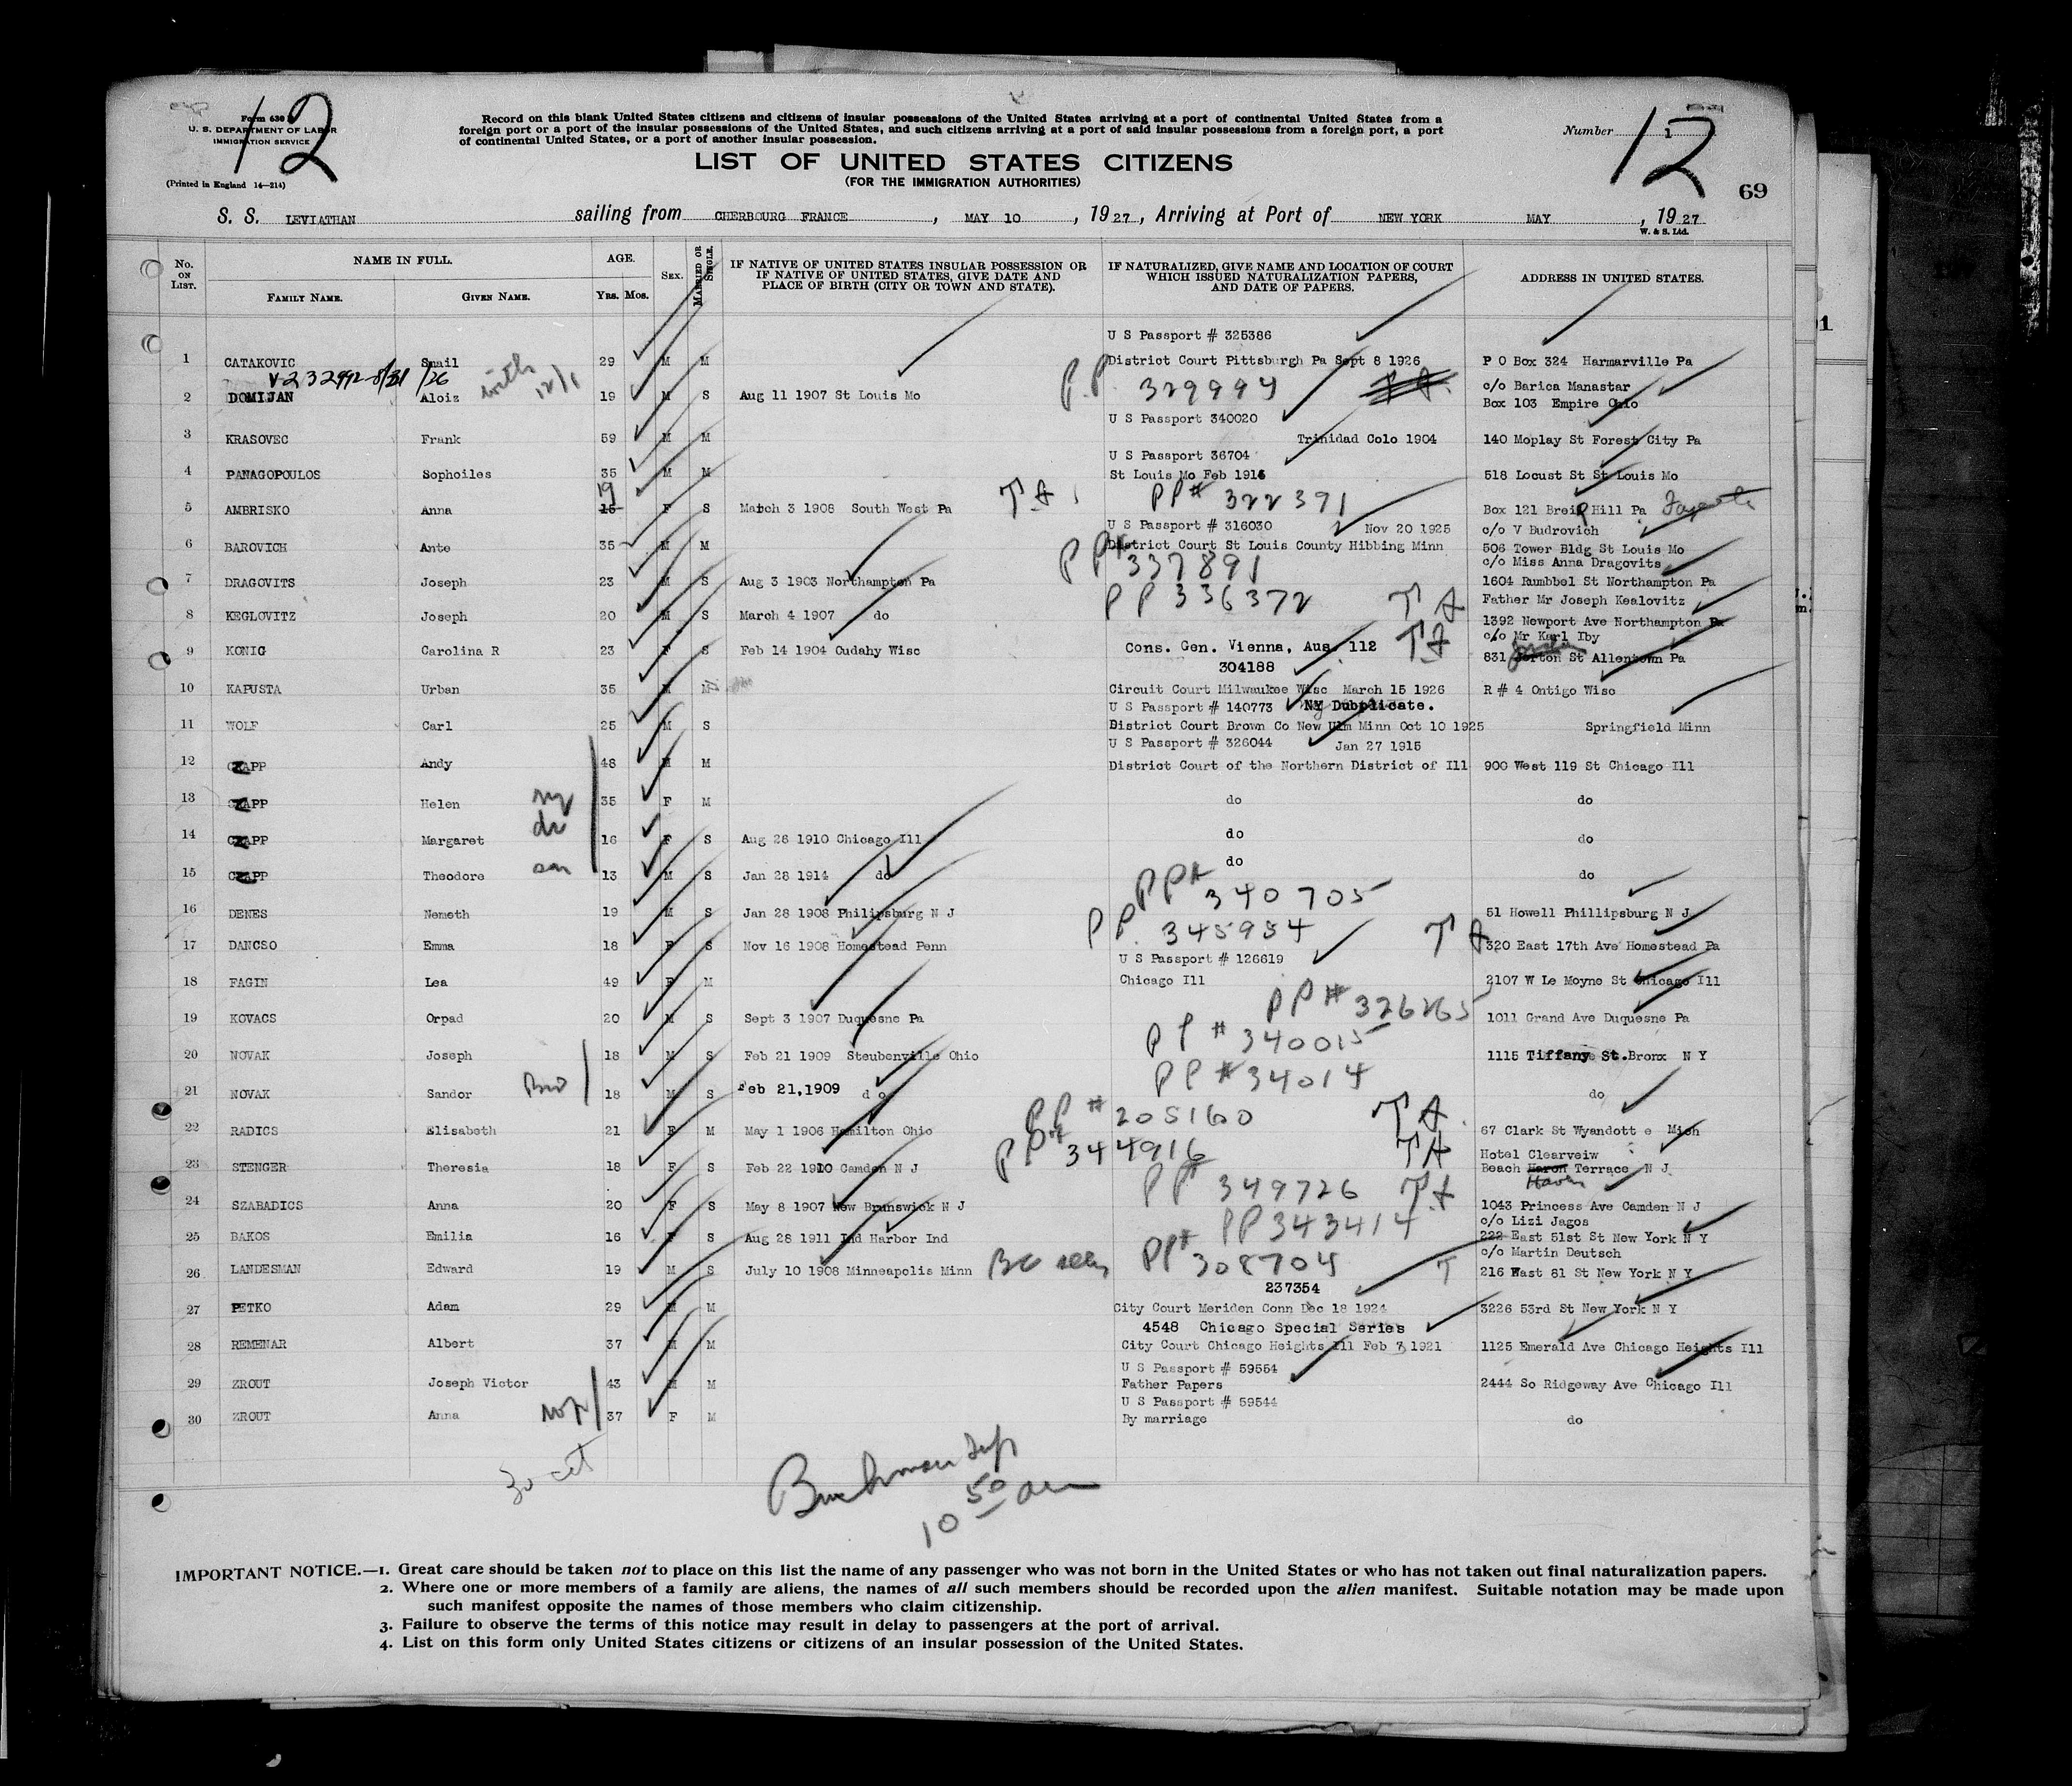 12
Form 630
U. S. DEPARTMENT OF LABOR
IMMIGRATION SERVICE
(Printed in England 14—214)
Record on this blank United States citizens and citizens of insular possessions of the United States arriving at a port of continental United States from a
foreign port or a port of the insular possessions of the United States, and such citizens arriving at a port of said insular possessions from a foreign port, a port
of continental United States, or a port of another insular possession.
Number 1
12
LIST OF UNITED STATES CITIZENS
(FOR THE IMMIGRATION AUTHORITIES)
69
S. S. LEVIATHAN sailing from CHERBOURG FRANCE, MAY 10, 1927, Arriving at Port of NEW YORK MAY, 1927
W. & S. Ltd.
No. ON LIST. NAME IN FULL. AGE. SEX. MARRIED OR SINGLE. IF NATIVE OF UNITED STATES INSULAR POSSESSION OR IF NATIVE OF UNITED STATES, GIVE DATE AND PLACE OF BIRTH (CITY OR TOWN AND STATE). IF NATURALIZED, GIVE NAME AND LOCATION OF COURT WHICH ISSUED NATURALIZATION PAPERS, AND DATE OF PAPERS. ADDRESS IN UNITED STATES.
FAMILY NAME. GIVEN NAME. YRS. MOS.
U S Passport # 325386
1 CATAKOVIC Smail 29 M M District Court Pittsburgh Pa Sept 8 1926 P O Box 324 Harmarville Pa
V232992-8/31/26 with 12/1 P.P. 329994 T A. c/o Barica Manastar
2 DOMIJAN Aloiz 19 M S Aug 11 1907 St Louis Mo Box 103 Empire Ohio
U S Passport 340020
3 KRASOVEC Frank 59 M M Trinidad Colo 1904 140 Moplay St Forest City Pa
U S Passport 36704
4 PANAGOPOULOS Sophoiles 35 M M St Louis Mo Feb 1915 518 Locust St St Louis Mo
19 T A PP# 322391
5 AMBRISKO Anna F S March 3 1908 South West Pa Box 121 Breip Hill Pa
U S Passport # 316030 Nov 20 1925 c/o V Budrovich
6 BAROVICH Ante 35 M M District Court St Louis County Hibbing Minn 506 Tower Bldg St Louis Mo
PP# 337891 c/o Miss Anna Dragovits
7 DRAGOVITS Joseph 23 M S Aug 3 1903 Northampton Pa 1604 Rumbbel St Northampton Pa
PP 336372 T A Father Mr Joseph Kealovitz
8 KEGLOVITZ Joseph 20 M S March 4 1907 do 1392 Newport Ave Northampton Pa
T A c/o Mr Karl Iby
9 KONIG Carolina R 23 F S Feb 14 1904 Cudahy Wisc Cons. Gen. Vienna, Aus. 112 831 St Allentown Pa
304188
10 KAPUSTA Urban 35 M M Circuit Court Milwaukee Wisc March 15 1926 R # 4 Ontigo Wisc
U S Passport # 140773 NY Dubplicate.
11 WOLF Carl 25 M S District Court Brown Co New Ulm Minn Oct 10 1925 Springfield Minn
U S Passport # 326044 Jan 27 1915
12 CZAPP Andy 48 M M District Court of the Northern District of Ill 900 West 119 St Chicago Ill
13 CZAPP Helen 35 F M do do
14 CZAPP Margaret 16 F S Aug 26 1910 Chicago Ill do do
15 CZAPP Theodore son 13 M S Jan 28 1914 do do do
PP# 340705
16 DENES Nemeth 19 M S Jan 28 1908 Philipsburg N J 51 Howell Phillipsburg N J
P.P. 345954 T A
17 DANCSO Emma 18 F S Nov 16 1908 Homestead Penn 320 East 17th Ave Homestead Pa
U S Passport # 126619
18 FAGIN Lea 49 F M Chicago Ill 2107 W Le Moyne St Chicago Ill
PP# 326265
19 KOVACS Orpad 20 M S Sept 3 1907 Duquesne Pa 1011 Grand Ave Duquesne Pa
PP # 340015
20 NOVAK Joseph 18 M S Feb 21 1909 Steubenville Ohio 1115 Tiffany St. Bronx N Y
PP # 34014
21 NOVAK Sandor Bro 18 M S Feb 21, 1909 do do
PP # 205160 T A.
22 RADICS Elisabeth 21 F M May 1 1906 Hamilton Ohio 67 Clark St Wyandott e Mich
PP# 344916 T A Hotel Clearveiw
23 STENGER Theresia 18 F S Feb 22 1910 Camden N J Beach Haron Terrace N J
PP# 349726 T A Haven
24 SZABADICS Anna 20 F S May 8 1907 New Brunswick N J 1043 Princess Ave Camden N J
PP 343414 c/o Lizi Jagos
25 BAKOS Emilia 16 F S Aug 28 1911 Ind Harbor Ind 222 East 51st St New York N Y
PP# 308704 c/o Martin Deutsch
26 LANDESMAN Edward 19 M S July 10 1908 Minneapolis Minn BC seen T 216 East 81 St New York N Y
237354
27 PETKO Adam 29 M M City Court Meriden Conn Dec 18 1924 3226 53rd St New York N Y
4548 Chicago Special Series
28 REMENAR Albert 37 M M City Court Chicago Heights Ill Feb 7 1921 1125 Emerald Ave Chicago Heights Ill
U S Passport # 59554
29 ZROUT Joseph Victor 43 M M Father Papers 2444 So Ridgeway Ave Chicago Ill
U S Passport # 59544
30 ZROUT Anna 37 F M By marriage do
30 cit
Buchman Insp
10 50 am
IMPORTANT NOTICE.—1. Great care should be taken not to place on this list the name of any passenger who was not born in the United States or who has not taken out final naturalization papers.
2. Where one or more members of a family are aliens, the names of all such members should be recorded upon the alien manifest. Suitable notation may be made upon
such manifest opposite the names of those members who claim citizenship.
3. Failure to observe the terms of this notice may result in delay to passengers at the port of arrival.
4. List on this form only United States citizens or citizens of an insular possession of the United States.